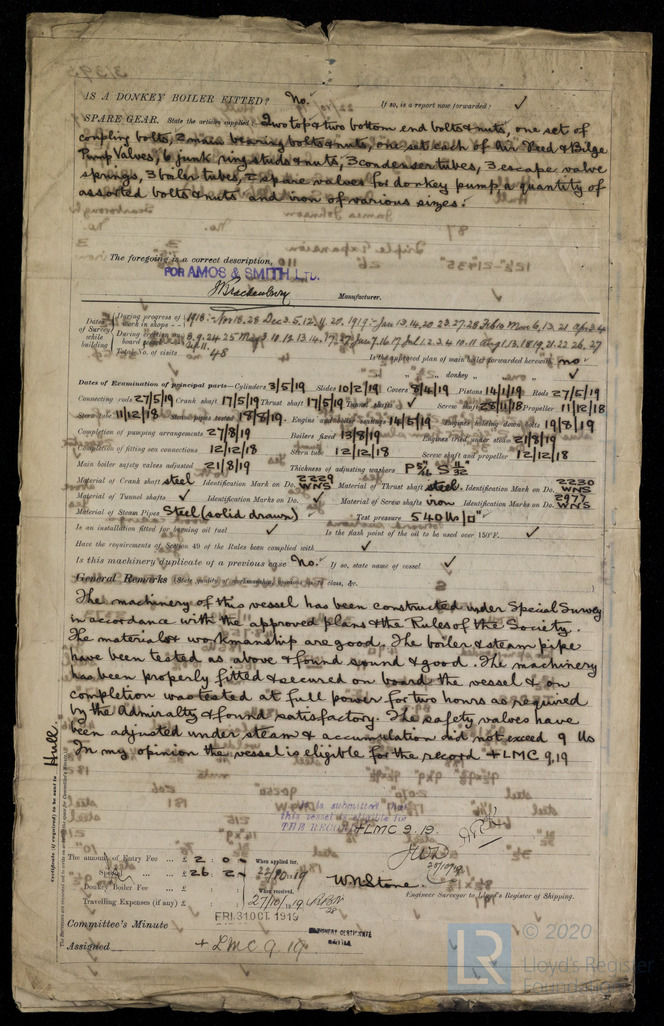 IS A DONKEY BOILER FITTED? No. If so, is a report now forwarded? ✓
SPARE GEAR. State the articles supplied:- Two top & two bottom end bolts & nuts, one set of
coupling bolts, 2 main bearing bolts & nuts, one set each of Air Feed & Bilge
Pump Valves, 6 junk ring studs & nuts, 3 condenser tubes, 3 escape valve
springs, 3 boiler tubes, 2 spare valves for donkey pump, a quantity of
assorted bolts & nuts and iron of various sizes.
The foregoing is a correct description,
FOR AMOS & SMITH LTD.
Manufacturer.
Dates of Survey while building
During progress of work in shops - - 1918:- Nov 18. 28 Dec 3. 5. 12. 11. 20. 1919:- Jan 13. 14. 20 23. 27. 28 Feb 10 Mar 6. 13. 21 Apr 3. 4
During erection on board vessel
Total No. of visits 48
Is the approved plan of main boiler forwarded herewith no
" " " donkey " " " ✓
Dates of Examination of principal parts—Cylinders 3/5/19 Slides 10/2/19 Covers 8/4/19 Pistons 14/1/19 Rods 27/5/19
Connecting rods 27/5/19 Crank shaft 17/5/19 Thrust shaft 17/5/19 Tunnel shafts ✓ Screw shaft 28/11/18 Propeller 11/12/18
Stern tube 11/12/18 Steam pipes tested 18/8/19 Engine and boiler seatings 14/5/19 Engines holding down bolts 19/8/19
Completion of pumping arrangements 27/8/19 Boilers fixed 13/8/19 Engines tried under steam 21/8/19
Completion of fitting sea connections 12/12/18 Stern tube 12/12/18 Screw shaft and propeller 12/12/18
Main boiler safety valves adjusted 21/8/19 Thickness of adjusting washers
Material of Crank shaft steel Identification Mark on Do. 2229 WNS Material of Thrust shaft steel Identification Mark on Do. 2230 WNS
Material of Tunnel shafts ✓ Identification Marks on Do. ✓ Material of Screw shafts iron Identification Marks on Do. 2977 WNS
Material of Steam Pipes Steel (solid drawn) ✓ Test pressure 540 lbs/□"
Is an installation fitted for burning oil fuel ✓ Is the flash point of the oil to be used over 150°F. ✓
Have the requirements of Section 49 of the Rules been complied with ✓
Is this machinery duplicate of a previous case No. If so, state name of vessel ✓
General Remarks
The machinery of this vessel has been constructed under Special Survey
in accordance with the approved plans & the Rules of the Society.
The materials & workmanship are good. The boiler & steam pipe
have been tested as above & found sound & good. The machinery
has been properly fitted & secured on board the vessel & on
completion was tested at full power for two hours as required
by the Admiralty & found satisfactory. The safety valves have
been adjusted under steam & accumulation did not exceed 9 lbs
In my opinion the vessel is eligible for the record + LMC 9,19
Certificate (if required) to be sent to Hull.
It is submitted that
this vessel is eligible for
THE RECORD +LMC 9.19.
The amount of Entry Fee ... £ 2 : 0 : When applied for,
Special ... £ 26 : 2 : 22/10/19
Donkey Boiler Fee ... £ : : When received,
Travelling Expenses (if any) £ : : 27/10/19
WNStone.
Engineer Surveyor to Lloyd's Register of Shipping.
Committee's Minute FRI.31 OCT. 1919
Assigned + LMC 9.19
MACHINERY CERTIFICATE
WRITTEN
LR © 2020
Lloyd's Register
Foundation